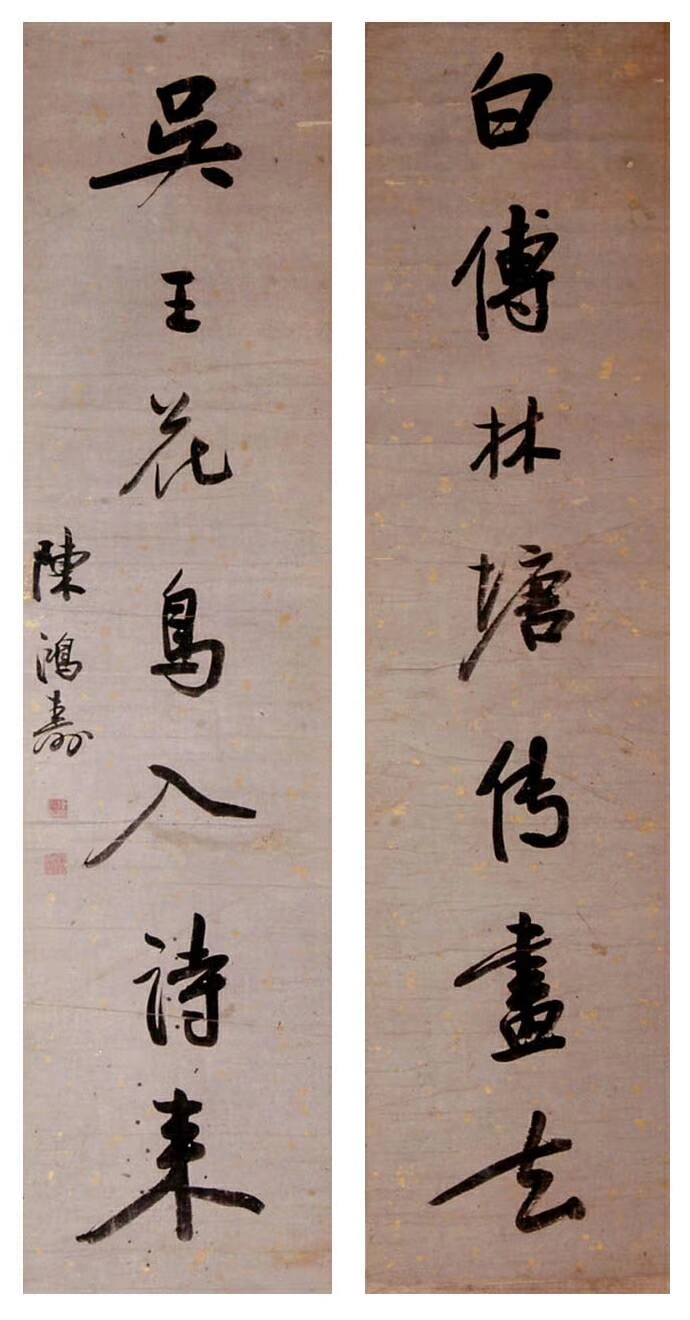 白傅林塘传畫去
吳王花鳥入詩来
陳鴻壽